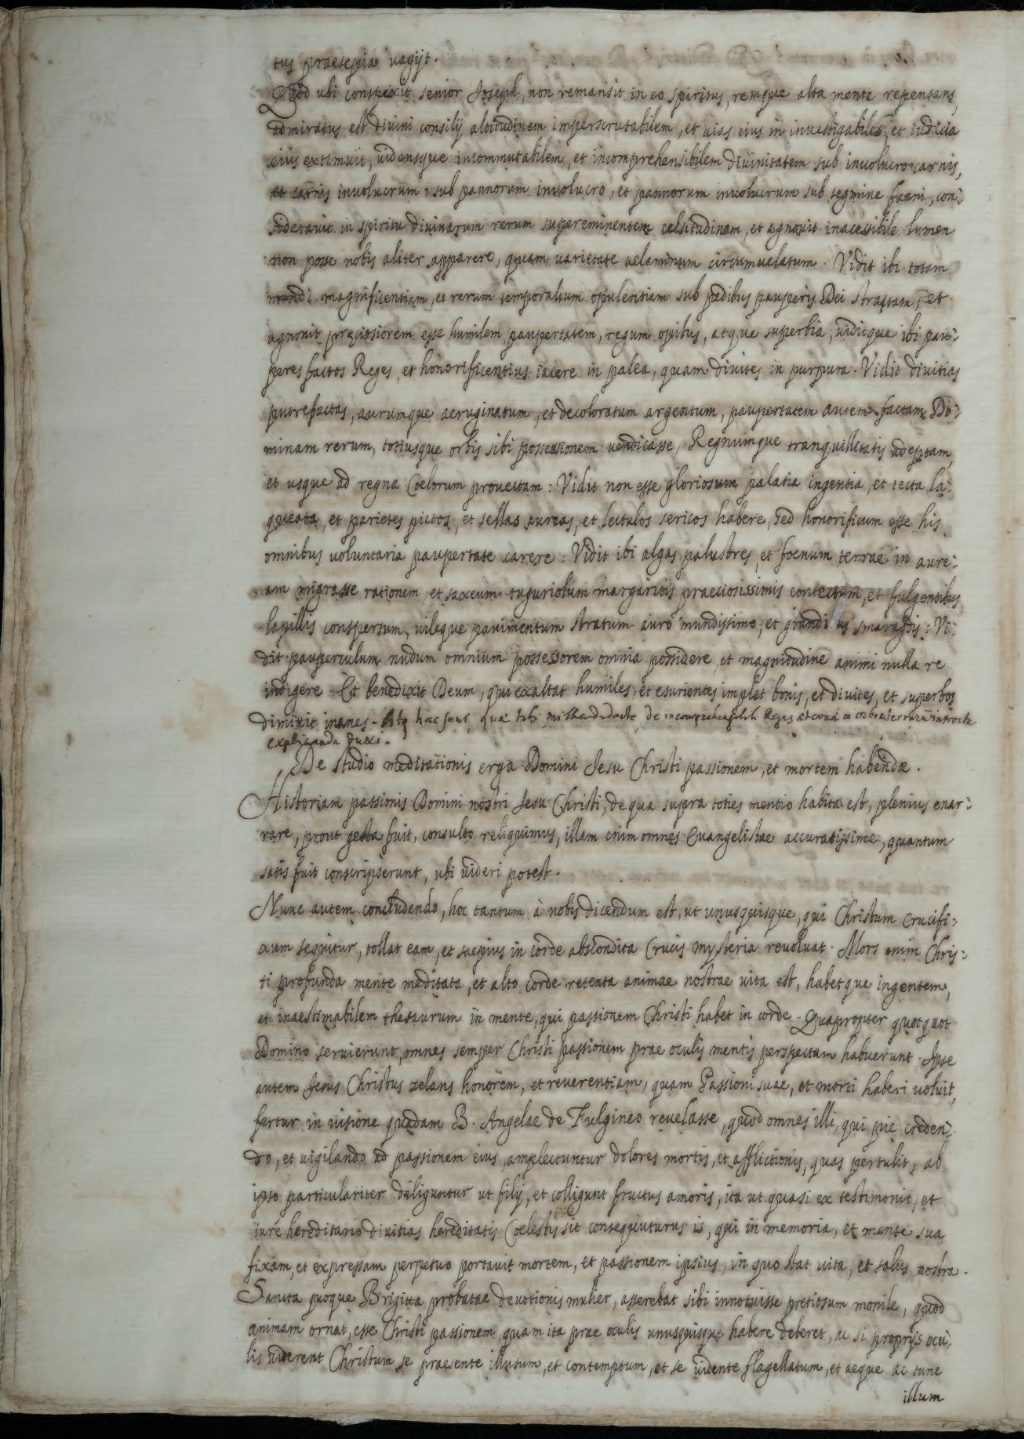 tus praesepia vagijt.
Quod ubi conspexit senior Joseph, non remansit in eo spiritus, remque alta mente repensans,
admiratus est divini consilij altitudinem imperscrutabilem, et vias eius in investigabiles, et iudicia
eius extimuit, vidensque incommutabilem, et incomprehensibilem divinitatem sub involucro carnis,
et carnis involucrum sub pannorum involucro, et pannorum involucrum sub tegmine foeni, con:
sideravit in spiritu divinarum rerum supereminentem celsitudinem, et agnovit inacessibile lumen
non posse nobis aliter apparere, quam varietate velaminum circumvelatum. Vidit ibi totam
mundi magnificentiam, et rerum temporalium opulentiam sub pedibus pauperis Dei stratam, et
agnovit praetiosiorem esse humilem paupertatem, regum opibus, atque superbia, viditque ibi pau:
peres factos Reges, et honorificentius iacere in palea, quam divites in purpura. Vidit divitias
putrefactas, aurumque aeruginatum, et decoloratum argentum, paupertatem autem factam Do:
minam rerum, totiusque orbis sibi possessionem vendicasse, Regnumque tranquillitatis adeptam,
et usque ad regna Coelorum provectam: Vidit non esse gloriosum palatia ingentia, et tecta la:
queata, et parietes pictos, et sellas aureas, et lectulos sericos habere, sed honorificum esse his
omnibus voluntaria paupertate carere: Vidit ibi algas palustres, et foenum terrae in aure:
am migrasse rationem, et saxeum tuguriolum margaritis praeciosissimis contectum, et fulgentibus
lapillis conspersum, vileque pavimentum stratum auro mundissimo, et smaragdis: Vi:
dit pauperculum nudum omnium possessorem omnia possidere, et magnitudine animi nulla re
indigere. Et benedixit Deum, qui exaltat humiles, et esurientes implet bonis, et divites, et superbos
dimixit inanes. haec sunt, quae tibi de
explicanda duxi.
De studio meditationis erga Domini Jesu Christi passionem, et mortem habendae.
Historiam passionis Domini nostri Jesu Christi, de qua supra toties mentio habita est, plenius enar:
rare, prout gesta fuit, consulto reliquimus, illam enim omnes Evangelistae accuratissime, quantum
satis fuit conscripserunt, ubi videri potest.
Nunc autem concludendo, hoc tantum à nobis dicendum est, ut unusquisque, qui Christum crucifi:
xum sequitur, tollat eam, et saepius in corde abscondita Crucis mysteria revolvat. Mors enim Chris:
ti profunda mente meditata, et alto corde retenta animae nostrae vita est, habetque ingentem,
et inaestimabilem thesaurum in mente, qui passionem Christi habet in corde. Quapropter quotquot
Domino servierunt, omnes semper Christi passionem prae oculis mentis perspectam habuerunt. Ipse
autem Jesus Christus zelans honorem, et reverentiam, quam Passioni suae, et morti haberi voluit,
fertur in visione quadam B. Angelae de Fulgineo revelasse, quod omnes illi, qui pie creden:
do, et vigilando ad passionem eius, amplectuntur dolores mortis, et afflictionis, quas pertulit, ab
ipso particulariter diliguntur ut filij, et colligunt fructus amoris, ita ut quasi ex testimonio, et
iure hereditario divitias hereditatis Coelestis sit consequuturus is, qui in memoria, et mente sua
fixam, et expressam perpetuo portavit mortem, et passionem ipsius, in quo stat vita, et salus nostra.
Sancta quoque Brigitta probatae devotionis mulier, asserebat sibi innotuisse pretiosum monile, quod
animam ornat, esse Christi passionem, quam ita prae oculis unusquisque habere deberet, ac si proprijs ocu:
lis viderent Christum se praesente illusum, et contemptum, et se vidente flagellatum, et aeque ac tunc
illum